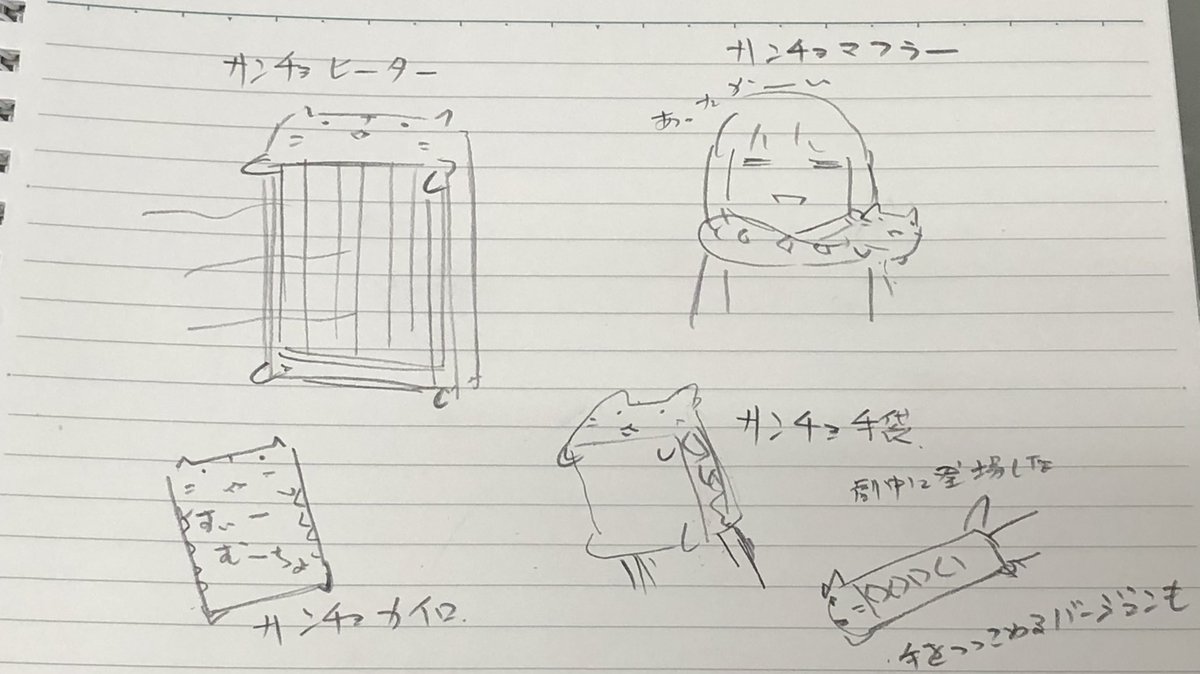 サンチョヒーター
サンチョマフラー
あったかーい
サンチョ手袋
劇中に登場した
手をつっこめるバージョンも
サンチョカイロ